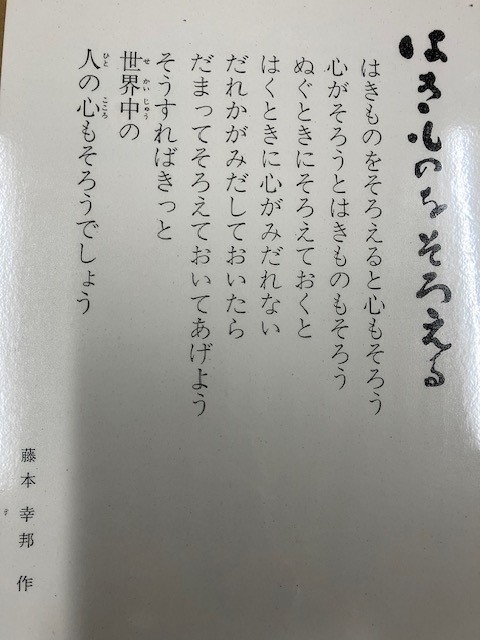 はきものをそろえる
はきものをそろえると心もそろう
心がそろうとはきものもそろう
ぬぐときにそろえておくと
はくときに心がみだれない
だれかがみだしておいたら
だまってそろえておいてあげよう
そうすればきっと
世界中の
せかいじゅう
人の心もそろうでしょう
ひと こころ
藤本幸邦 作